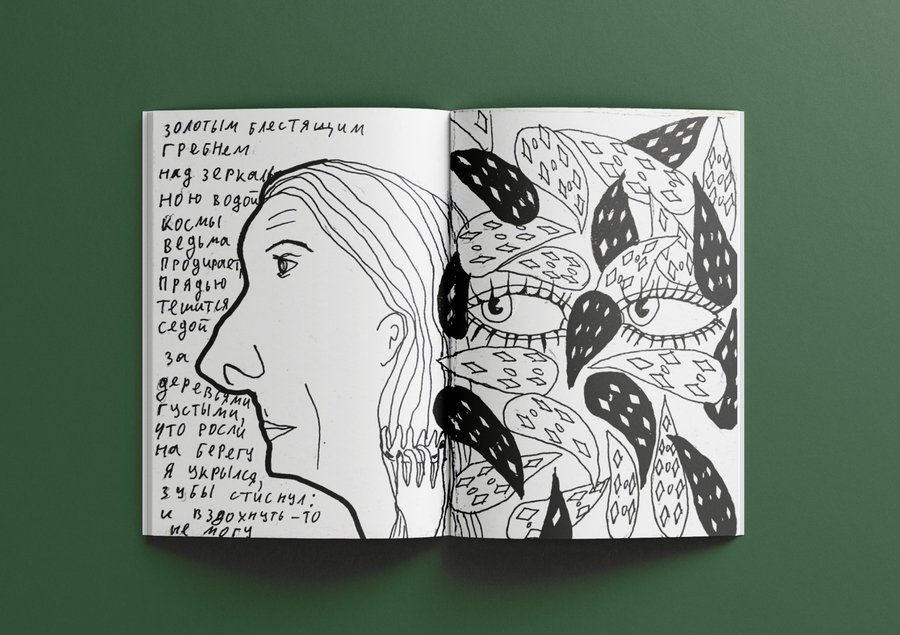 золотым блестящим
гребнем
над зеркаль
ною водой
космы
ведьма
продирает,
прядью
тешится
седой
за
деревьями
густыми,
что росли
на берегу
я укрылся,
зубы стиснул:
и вздохнуть-то
не могу